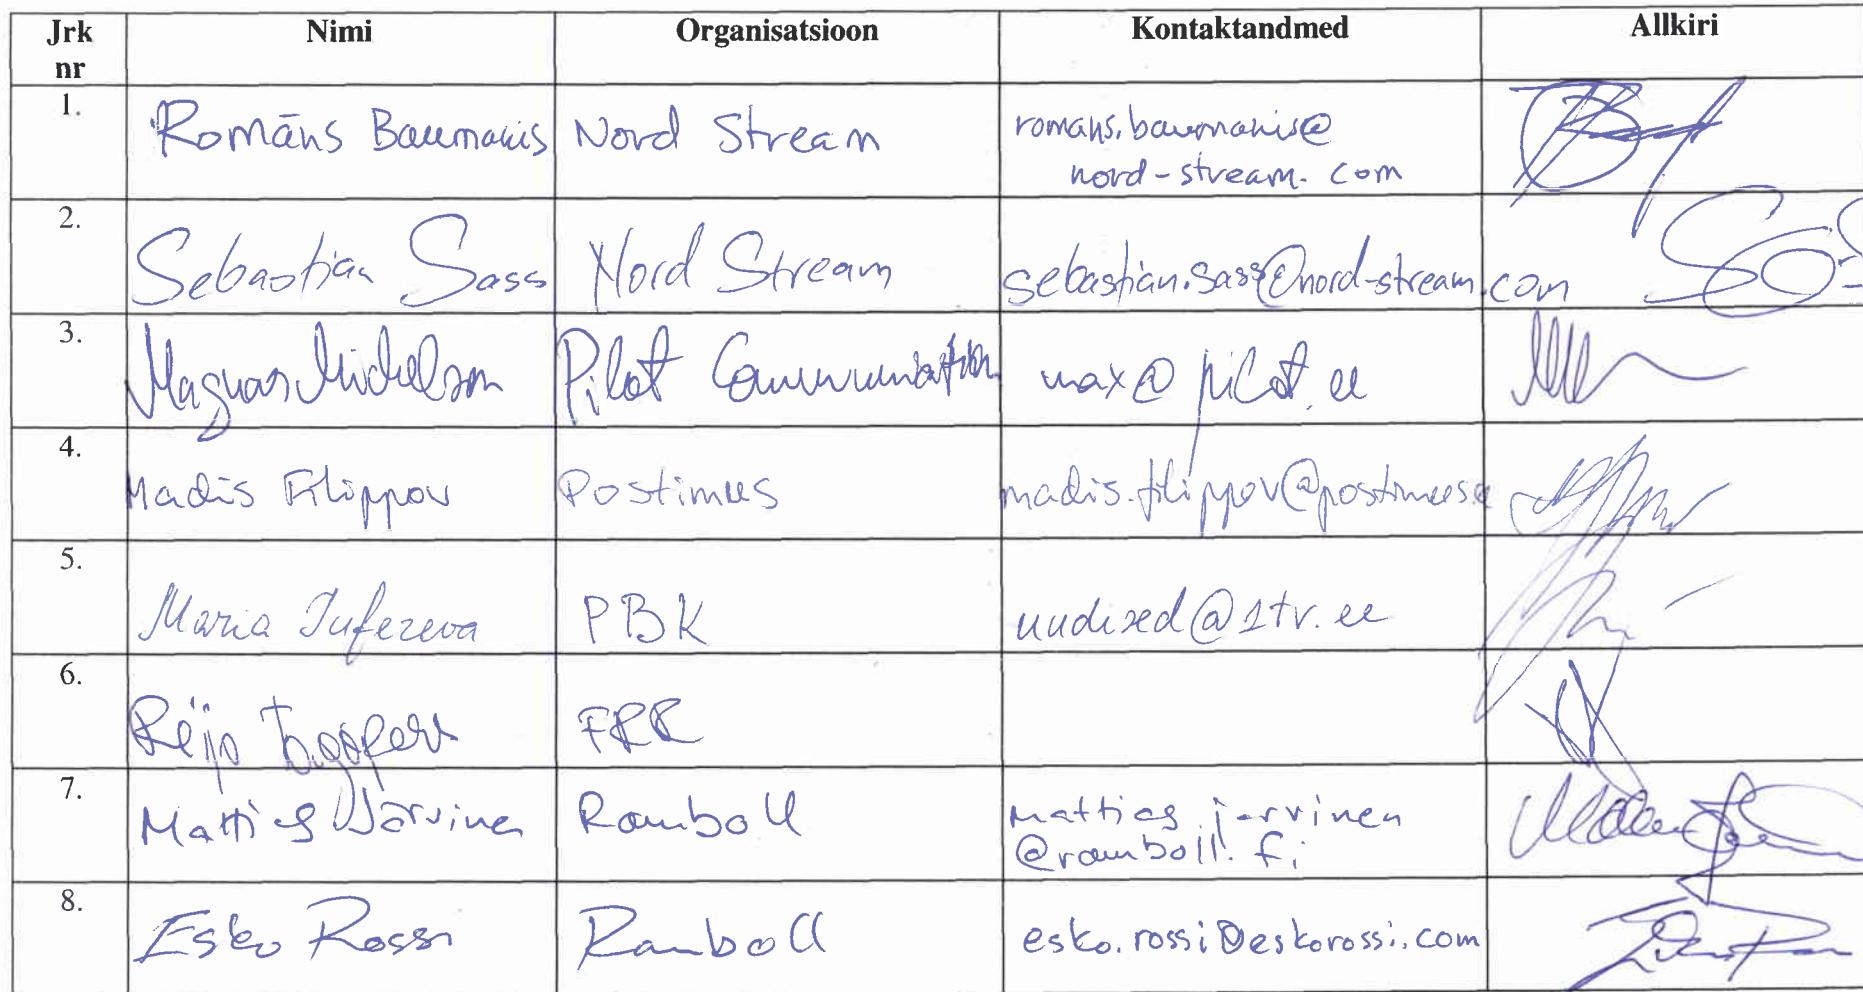 Jrk nr Nimi Organisatsioon Kontaktandmed Allkiri
1. Romāns Baumanis Nord Stream romans.baumanis@
nord-stream.com
2. Sebastian Sass Nord Stream sebastian.sass@nord-stream.com
3. Magnar Michelson Pilot Communication max@pilot.ee
4. Madis Filippov Postimees madis.filippov@postimees.e
5. Maria Jufereva PBK uudised@1tv.ee
6. Reijo
7. Mattias Järvinen Ramboll mattias.jarvinen
@ramboll.fi
8. Esko Rossi Ramboll esko.rossi@eskorossi.com